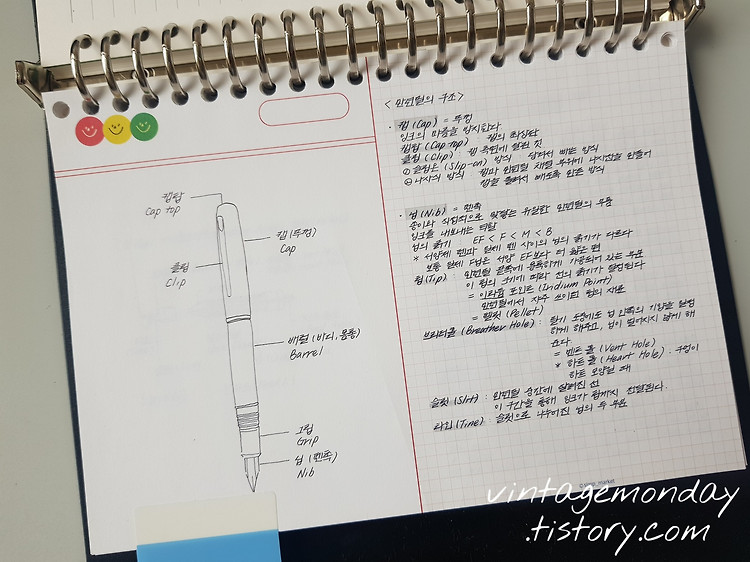 캡탑
Cap top
캡(뚜껑)
Cap
클립
Clip
배럴 (바디, 몸통)
Barrel
그립
Grip
닙 (펜촉)
Nib
<만년필의 구조>
· 캡(Cap) = 뚜껑
잉크의 마름을 방지한다
캡탑 (Cap top) 캡의 최상단
클립 (Clip) 캡 측면에 달린 것
① 슬립온 (Slip-on) 방식 당겨서 빼는 방식
② 나사식 방식 캡과 만년필 배럴 부위에 나사선을 만들어
캡을 돌려서 빼도록 만든 방식
· 닙(Nib) = 펜촉
종이와 직접적으로 맞닿는 유일한 만년필의 부품
잉크를 내보내는 역할
닙의 굵기 EF < F < M < B
* 서양제 펜과 일제 펜 사이의 닙의 굵기가 다르다
보통 일제 F닙은 서양 EF보다 더 얇은 편
팁(Tip) : 만년필 끝쪽에 동그랗게 가공되어 있는 부분
이 팁의 크기에 따라 선의 굵기가 결정된다
= 이리듐 포인트 (Iridium Point)
만년필에서 자주 쓰이던 팁의 재료
= 펠렛 (Pellet)
브리더홀 (Breather Hole) : 필기 도중에도 닙 안쪽의 기압을 일정
하게 해주고, 닙이 벌어지지 않게 해
준다
= 벤트 홀 (Vent Hole)
* 하트 홀 (Heart Hole) : 구멍이
하트 모양일 때
슬릿 (Slit) : 만년필 중간에 갈라진 선
이 구간을 통해 잉크가 팁까지 전달된다.
타인 (Tine) : 슬릿으로 나누어진 닙의 두 부분
vintagemonday
.tistory.com